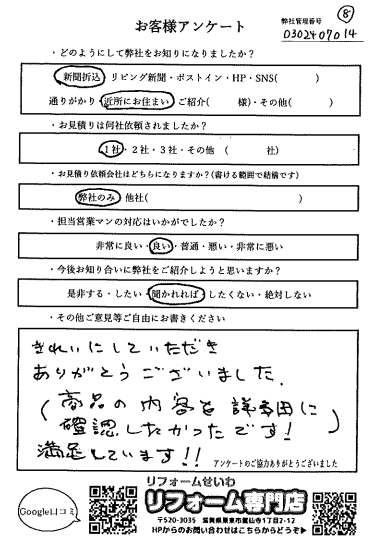 お客様アンケート
弊社管理番号
⑧
0302407014
・どのようにして弊社をお知りになりましたか？
新聞折込・リビング新聞・ポストイン・HP・SNS(　　　)
通りがかり・近所にお住まい・ご紹介(　　　様)・その他(　　　)
・お見積りは何社依頼されましたか？
1社・2社・3社・その他　(　　　社)
・お見積り依頼会社はどちらになりますか？(書ける範囲で結構です)
弊社のみ・他社(　　　)
・担当営業マンの対応はいかがでしたか？
非常に良い・良い・普通・悪い・非常に悪い
・今後お知り合いに弊社をご紹介しようと思いますか？
是非する・したい・聞かれれば・したくない・絶対しない
・その他ご意見等ご自由にお書きください
きれいにしていただき
ありがとうございました.
(商品の内容を詳細に
確認したかったです!)
満足しています!!
アンケートのご協力ありがとうございました
Google口コミ
リフォームせいわ
リフォーム専門店
〒520-3035　滋賀県栗東市霊仙寺1丁目2-12
HPからのお問い合わせはこちらからどうぞ▶